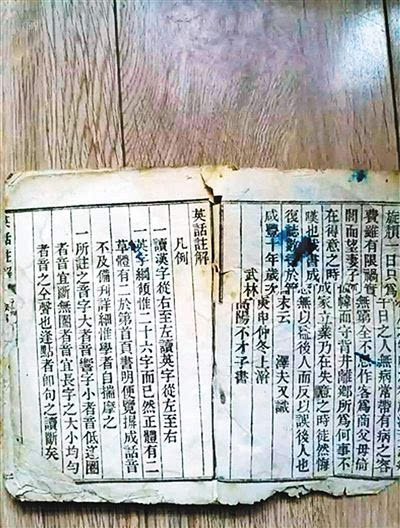 旋頭一日只為 日之人無病常帶有病之容
費雖有限禍實無窮全不 作客為商父母倚
閭而望妻子 幃而守背井離鄉所為何事不
在得意之時成家立業乃在失意之時徒然悔
嘆也茲書成 無以益後人而反以誤後人也
復誌數 於篇末云 澤夫又識
咸豐十年歲次庚申仲冬上澣
武林高陽不才子書
英話註解
凡例
一讀漢字從右至左讀英字從左至右
一英字綱領惟二十六字而已然正體有二
草體有二於第首頁書明便覽揖成話音
不及備列詳細惟學者自揣摩之
一所註之音字大者音響字小者音低逢圈
者音宜斷無圈者音宜長字之大小均勻
者音之仝聲也逢點者即句之讀斷矣
英話註解